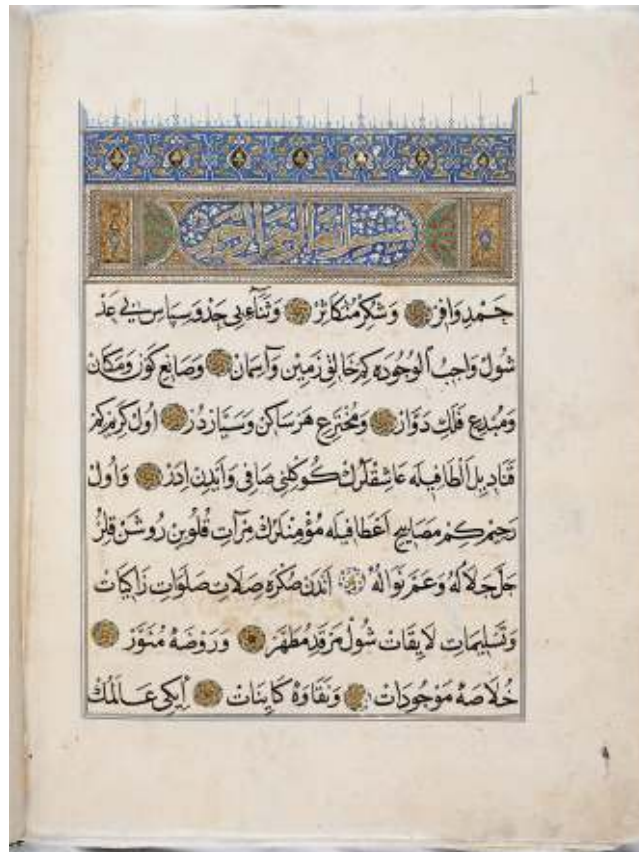 بسم الله الرحمن الرحيم
حَمْدِ وَافِرْ وَشُكْرِ مُتَكَاثِرْ وَثَنَاءِ بِی حَدْ وَسِپَاسِ بِی عَدْ
شُولْ وَاجِبُ الْوُجُودَه كِمْ خَالِقِ زَمِينْ وَآسِمَانْ وَصَانِعِ كَوْنُ وَمَكَانْ
وَمُبْدِعِ فَلَكِ دَوَّارْ وَمُخْتَرِعِ هَرْ سَاكِنْ وَسَيَّارْدُرْ اُولْ كَرِيمْ كِمْ
قَنَادِيلِ اَلْطَافِيلَه عَاشِقْلَرُكْ كُوكْلِنِی صَافِی وَآيْدِنْ اِدَرْ وَاُولْ
رَحِيمْ كِمْ مَصَابِيحِ اَعْطَافِيلَه مُؤْمِنْلَرُكْ مِرْآتِ قُلُوبِنْ رُوشَنْ قِلُرْ
جَلَّ جَلَالُهُ وَعَمَّ نَوَالُهُ اَنْدَنْ صُكْرَه صِلَاتِ صَلَوَاتِ زَاكِيَاتْ
وَتَسْلِيمَاتِ لَايِقَاتْ شُولْ مَرْقَدِ مُطَهَّرْ وَرَوْضَهٔ مُنَوَّرْ
خُلَاصَهٔ مَوْجُودَاتْ وَنَقَاوَهٔ كَايِنَاتْ اِيكِی عَالَمُكْ
1